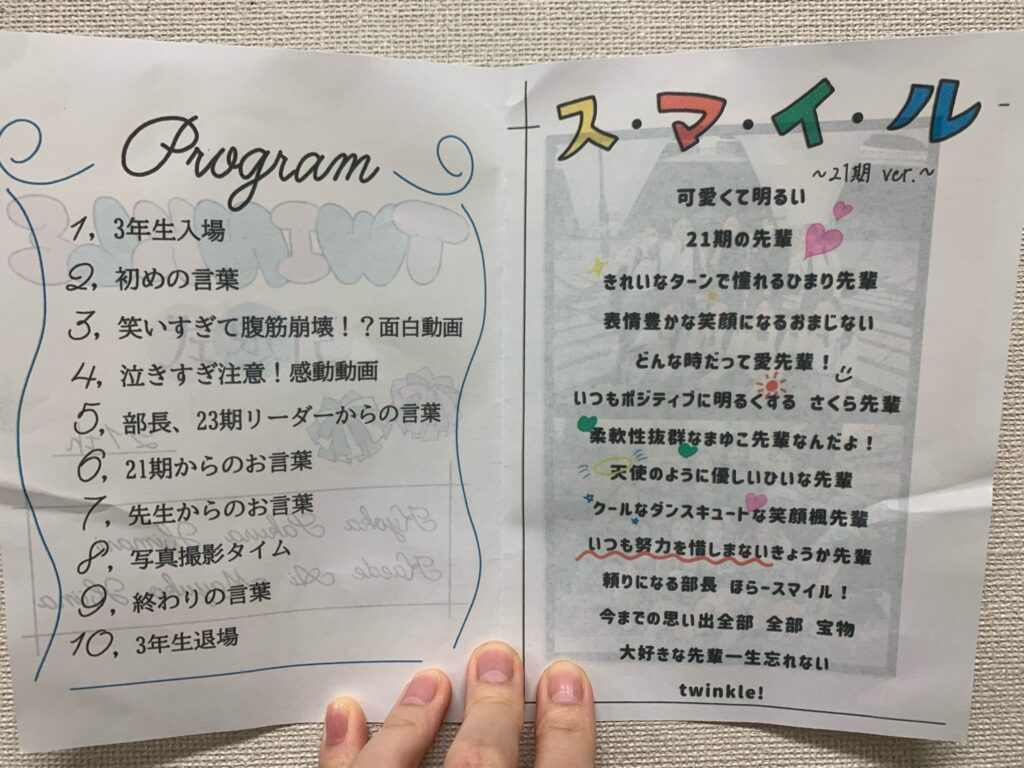 Program
1, 3年生入場
2, 初めの言葉
3, 笑いすぎて腹筋崩壊！？面白動画
4, 泣きすぎ注意！感動動画
5, 部長、23期リーダーからの言葉
6, 21期からのお言葉
7, 先生からのお言葉
8, 写真撮影タイム
9, 終わりの言葉
10, 3年生退場
ス・マ・イ・ル
～21期 ver.～
可愛くて明るい
21期の先輩
きれいなターンで憧れるひまり先輩
表情豊かな笑顔になるおまじない
どんな時だって愛先輩！
いつもポジティブに明るくする さくら先輩
柔軟性抜群なまゆこ先輩なんだよ！
天使のように優しいひいな先輩
クールなダンスキュートな笑顔楓先輩
いつも努力を惜しまないきょうか先輩
頼りになる部長 ほらースマイル！
今までの思い出全部 全部 宝物
大好きな先輩一生忘れない
twinkle!